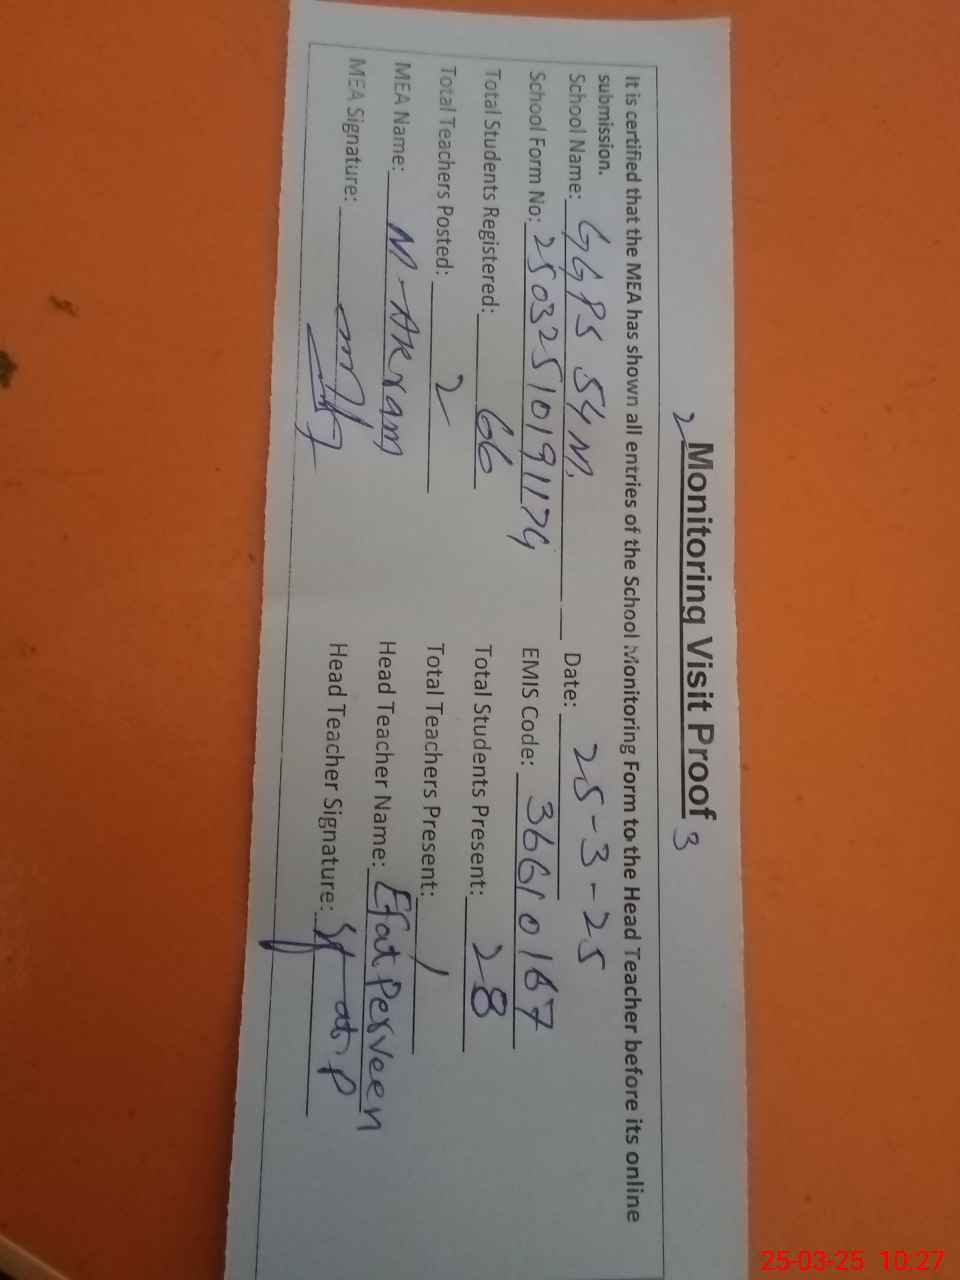 2 Monitoring Visit Proof 3
It is certified that the MEA has shown all entries of the School Monitoring Form to the Head Teacher before its online
submission.
School Name: GGPS 54 M. Date: 25-3-25
School Form No: 25032510191174 EMIS Code: 36610167
Total Students Registered: 66 Total Students Present: 28
Total Teachers Posted: 2 Total Teachers Present: 1
MEA Name: M-Akram Head Teacher Name: Efat Perveen
MEA Signature: Head Teacher Signature:
25-03-25 10:27